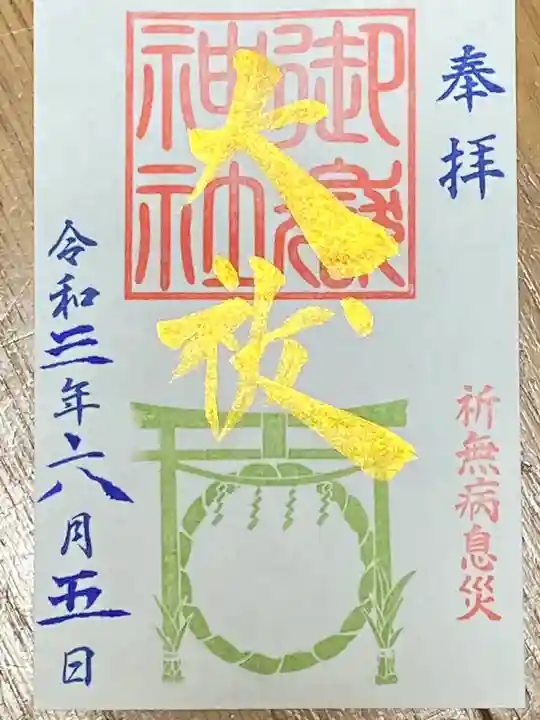 奉拝
御嶽
神社
大祓
祈無病息災
令和三年六月五日